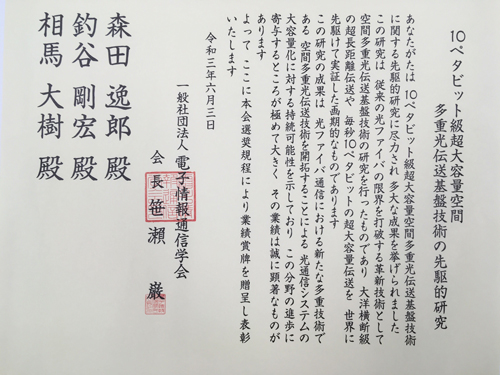 10ペタビット級超大容量空間
多重光伝送基盤技術の先駆的研究
あなたがたは 10ペタビット級超大容量空間多重光伝送基盤技術
に関する先駆的研究に尽力され 多大な成果を挙げられました
この研究は 従来の光ファイバの限界を打破する革新技術として
空間多重光伝送基盤技術の研究を行ったものであり 大洋横断級
の超長距離伝送や 毎秒10ペタビットの超大容量伝送を 世界に
先駆けて実証した画期的なものであります
この研究の成果は 光ファイバ通信における新たな多重技術で
ある 空間多重光伝送技術を開拓することによる 光通信システムの
大容量化に対する持続可能性を示しており この分野の進歩に
寄与するところが極めて大きく その業績は誠に顕著なものが
あります
よって ここに本会選奨規程により業績賞牌を贈呈し表彰
いたします
令和三年六月三日
一般社団法人 電子情報通信学会
会長 笹瀬 巌
森田 逸郎 殿
釣谷 剛宏 殿
相馬 大樹 殿